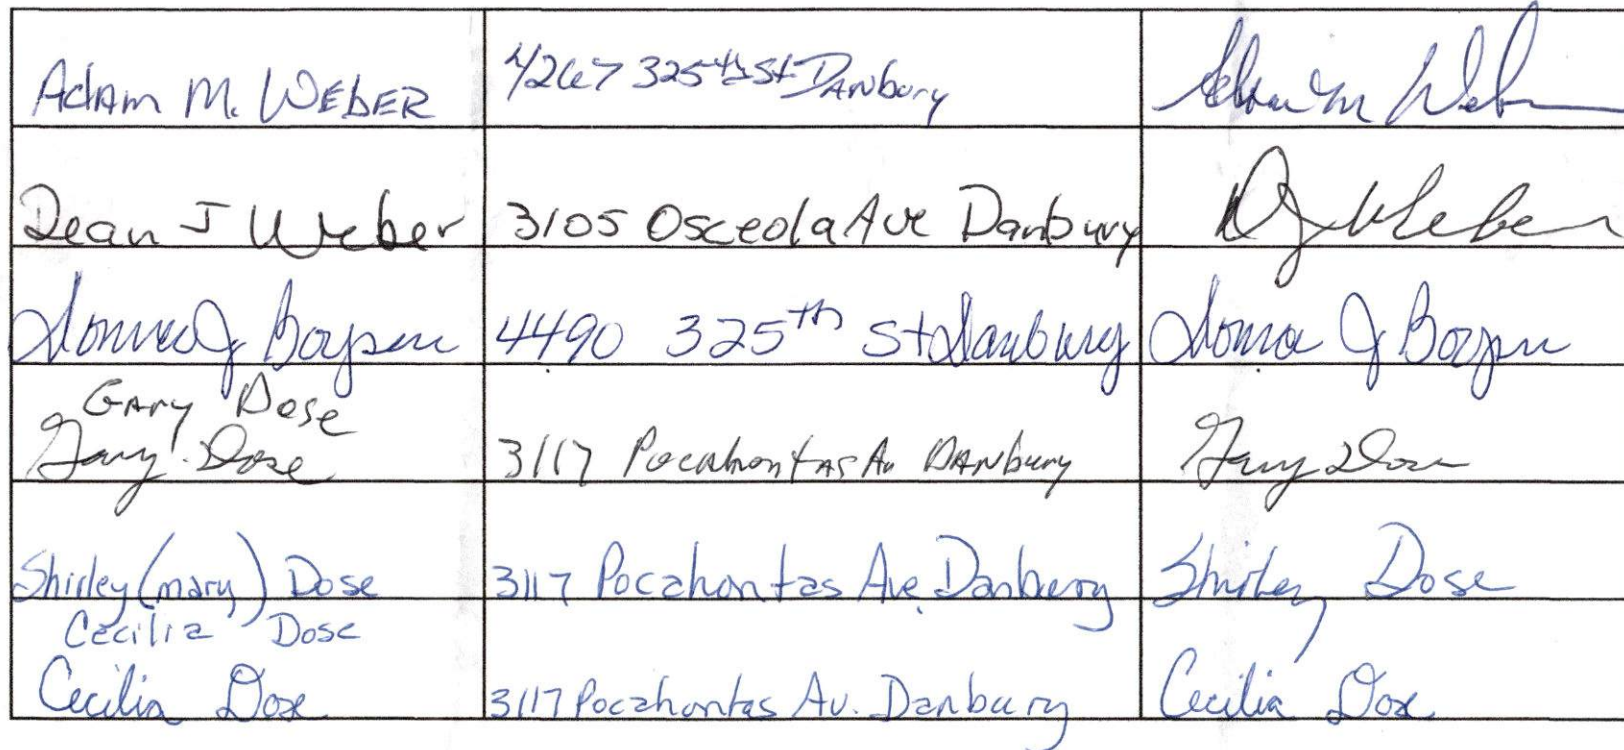 Adam M. WEbER 4267 325th St Danbury Adam M Weber
Dean J Weber 3105 Osceola Ave Danbury DJ Weber
Donna J Boysen 4490 325th St Danbury Donna J Boysen
GARY Dose
Gary Dose 3117 Pocahontas Av DANbury Gary Dose
Shirley (mary) Dose 3117 Pocahontas Ave. Danbury Shirley Dose
Cecilia Dose
Cecilia Dose 3117 Pocahontas Av. Danbury Cecilia Dose